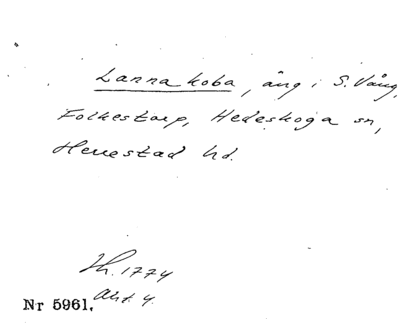 Lanna koba, äng i S. Vång,
Folkestorp, Hedeskoga sn,
Herrestad hd.
Lh. 1774
Akt. 4.
Nr 5961.